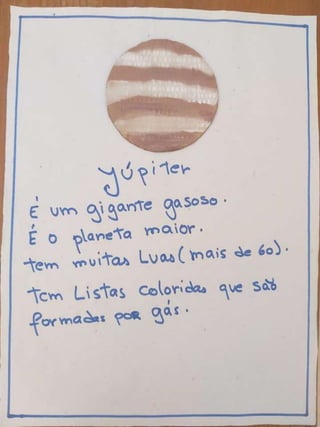 Yúpiter
É um gigante gasoso.
É o planeta maior.
tem muitas Luas (mais de 60).
Tem Listas coloridas que são
formadas por gás.